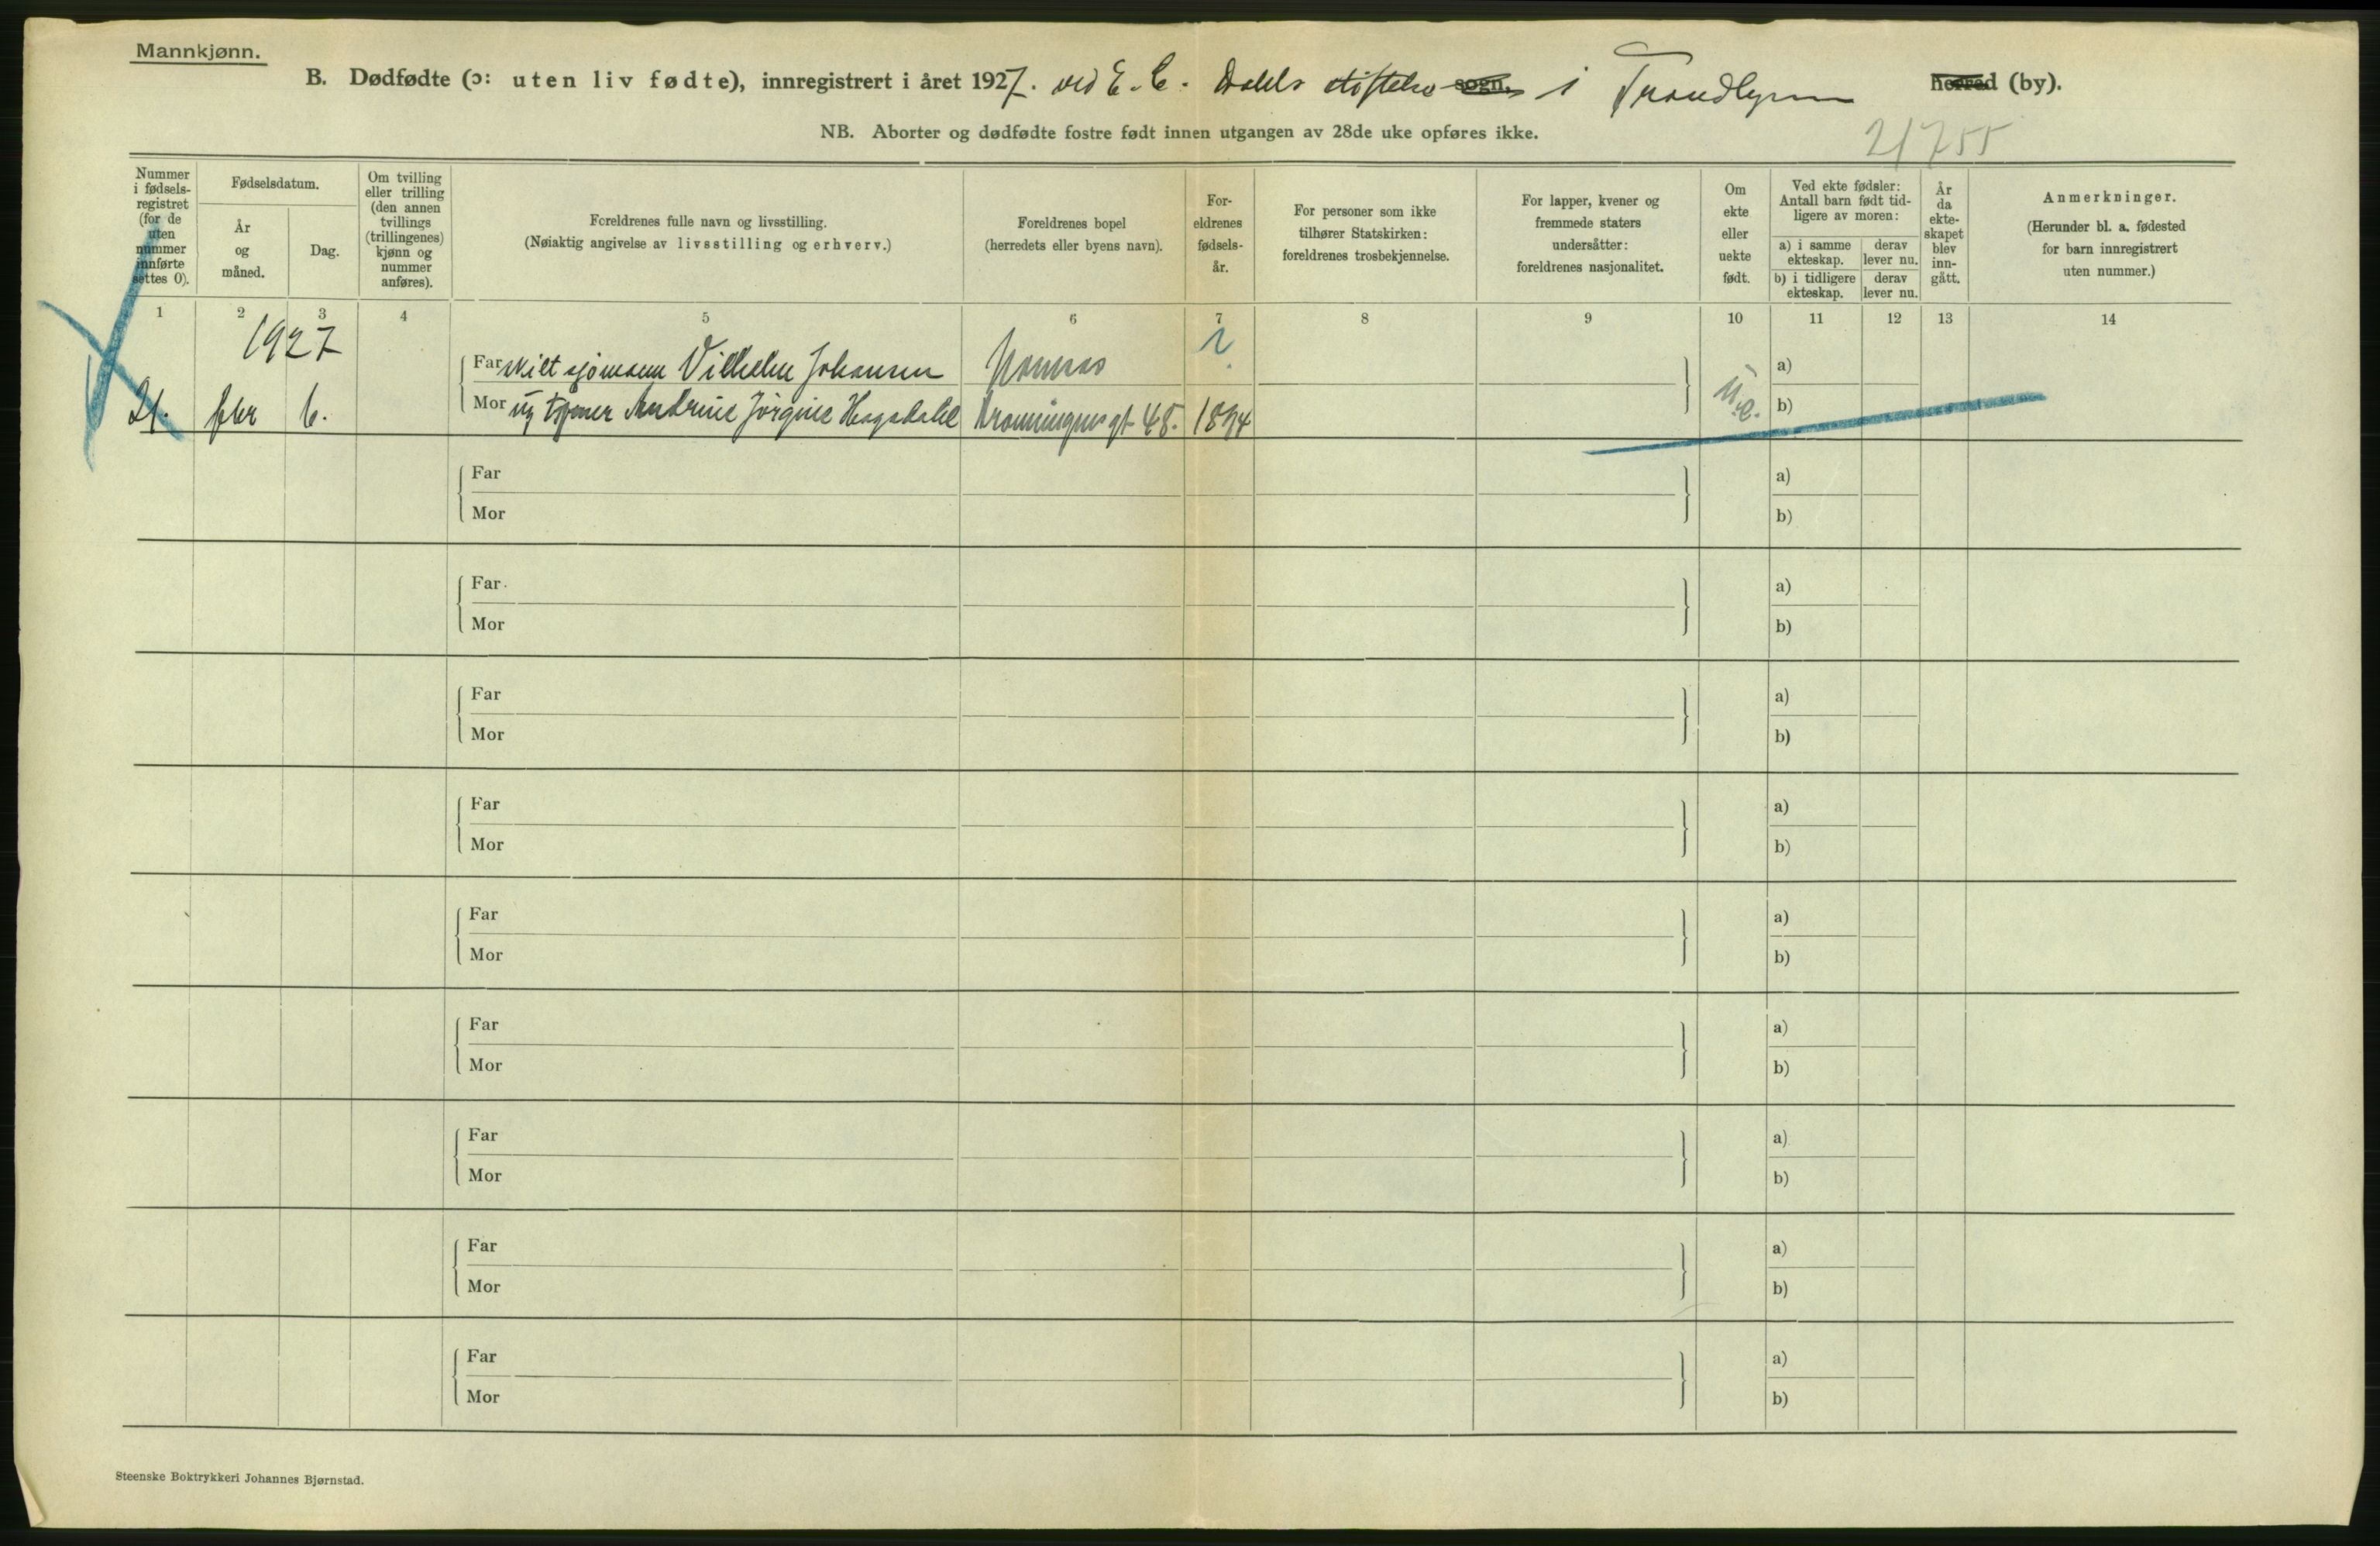 Mannkjønn.
B. Dødfødte (ɔ: uten liv fødte), innregistrert i året 1927. ved E. C. Dahls stiftelse sogn, i Trondhjem herred (by).
NB. Aborter og dødfødte fostre født innen utgangen av 28de uke opføres ikke.
21755
Nummer
i fødsels-
registret
(for de
uten
nummer
innførte
settes 0).
Fødselsdatum.
År
og
måned.
Dag.
Om tvilling
eller trilling
(den annen
tvillings
(trillingenes)
kjønn og
nummer
anføres).
Foreldrenes fulle navn og livsstilling.
(Nøiaktig angivelse av livsstilling og erhverv.)
Foreldrenes bopel
(herredets eller byens navn).
For-
eldrenes
fødsels-
år.
For personer som ikke
tilhører Statskirken:
foreldrenes trosbekjennelse.
For lapper, kvener og
fremmede staters
undersåtter:
foreldrenes nasjonalitet.
Om
ekte
eller
uekte
født.
Ved ekte fødsler:
Antall barn født tid-
ligere av moren:
a) i samme
ekteskap.
derav
lever nu.
b) i tidligere
ekteskap.
derav
lever nu.
År
da
ekte-
skapet
blev
inn-
gått.
Anmerkninger.
(Herunder bl. a. fødested
for barn innregistrert
uten nummer.)
1 2 3 4 5 6 7 8 9 10 11 12 13 14
1927
Far skilt sjømann Vilhelm Johansen ? a)
21. fbr 6. Mor ug tjener Andrine Jørgine Hagadahl Dronningensgt 48. 1894 u.e. b)
Far a)
Mor b)
Far a)
Mor b)
Far a)
Mor b)
Far a)
Mor b)
Far a)
Mor b)
Far a)
Mor b)
Far a)
Mor b)
Far a)
Mor b)
Far a)
Mor b)
Steenske Boktrykkeri Johannes Bjørnstad.